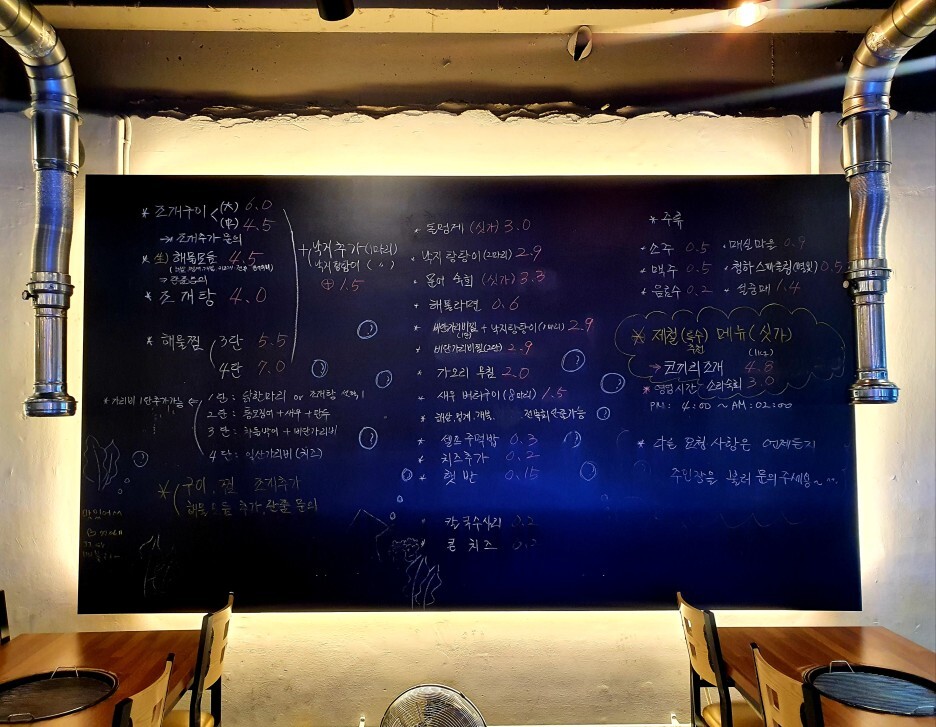 * 조개구이 < (大) 6.0
(中) 4.5
→ 조개추가 문의
* 生) 해물모듬 4.5
* 조개탕 4.0
+ 낙지추가 (1마리)
낙지탕탕이 ( 〃 )
⊕ 1.5
* 해물찜 3단 5.5
4단 7.0
1단: 닭한마리 or 조개탕 선택
2단: 통오징어 + 새우 + 만두
3단: 차돌박이 + 비단가리비
4단: 일산가리비 (치즈)
* 구이, 찜 조개추가
해물모듬 추가, 단품 문의
돌멍게 (싯가) 3.0
낙지탕탕이 (2마리) 2.9
문어 숙회 (싯가) 3.3
해물라면 0.6
비단가리비찜 + 낙지탕탕이 (1마리) 2.9
비단가리비찜 (2단) 2.9
가오리 무침 2.0
새우 버터구이 (8마리) 1.5
셀프 주먹밥 0.3
치즈추가 0.2
햇반 0.15
칼국수사리 0.2
콘치즈
* 주류
소주 0.5
매실마을 0.9
맥주 0.5
청하스파클링 0.5
음료수 0.2
설중매 1.4
* 제철(특수) 메뉴 (싯가)
추천
→ 코끼리조개 4.8
소라숙회 3.0
* 영업시간
PM: 4:00 ~ AM: 02:00
* 다른 요청사항은 언제든지
주인장을 불러 문의주세용~